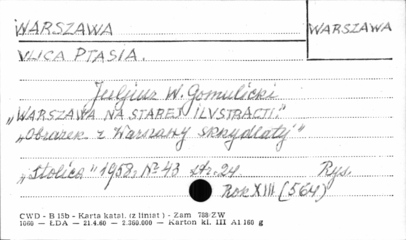 WARSZAWA WARSZAWA
ULICA PTASIA.
Juljusz W. Gomulicki
„WARSZAWA NA STAREJ ILUSTRACJI."
„Obrazek z Warszawy skrzydlatej"
„Stolica" 1958 r. Nr 43 str. 24 Rys.
Rok XIII (564)
CWD - B 15b - Karta katal. (z liniat) - Zam 738-ZW
1060 — ŁDA — 21.4.60 - 2.360.000 — Karton kl. III A1 160 g